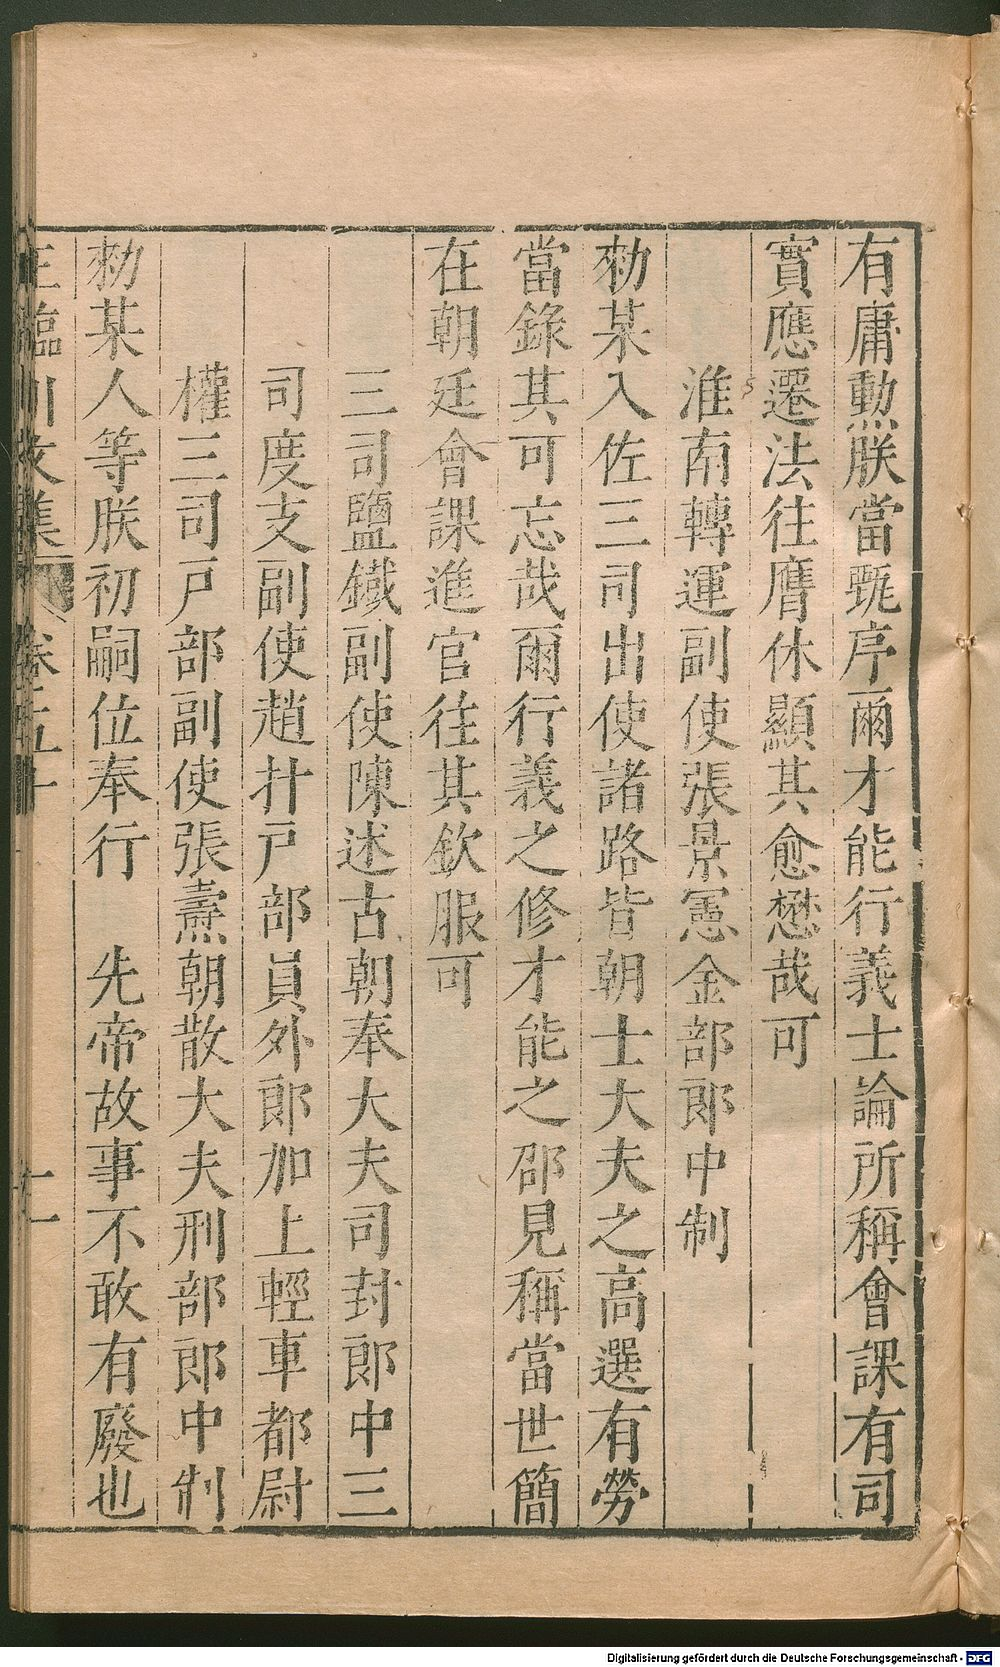 有庸勲朕當甄序爾才能行義士論所稱會課有司
實應遷法往膺休顯其愈懋哉可
淮南轉運副使張景憲金部郎中制
勑某入佐三司出使諸路皆朝士大夫之高選有勞
當錄其可忘哉爾行義之修才能之邵見稱當世簡
在朝廷會課進官往其欽服可
三司鹽鐵副使陳述古朝奉大夫司封郎中三
司度支副使趙抃戶部員外郎加上輕車都尉
權三司戸部副使張燾朝散大夫刑部郎中制
勑某人等朕初嗣位奉行　先帝故事不敢有廢也
王臨川文集　卷五十　十一
Digitalisierung gefördert durch die Deutsche Forschungsgemeinschaft - DFG